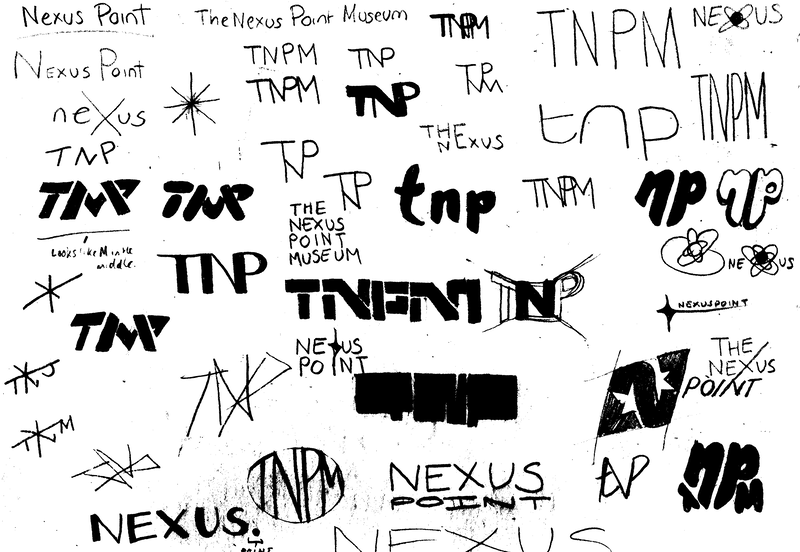 Nexus Point
The Nexus Point Museum
TNPM
TNPM
NEXUS
Nexus Point
TNPM
TNP
TPNM
neXus
TNPM
TNP
tnp
TNPM
THE
NEXUS
TNP
TNP
TNP
TNP
TNP
TNP
tnp
TNPM
np
np
THE
NEXUS
POINT
MUSEUM
Looks like M in the
middle.
TNP
NEXUS
NEXUSPOINT
TNPM
TNP
TNP
NEXUS
POINT
THE
NEXUS
POINT
TNP
TNP
N
TNPM
NEXUS
POINT
tNP
TnpM
NEXUS.
POINT
NEXUS